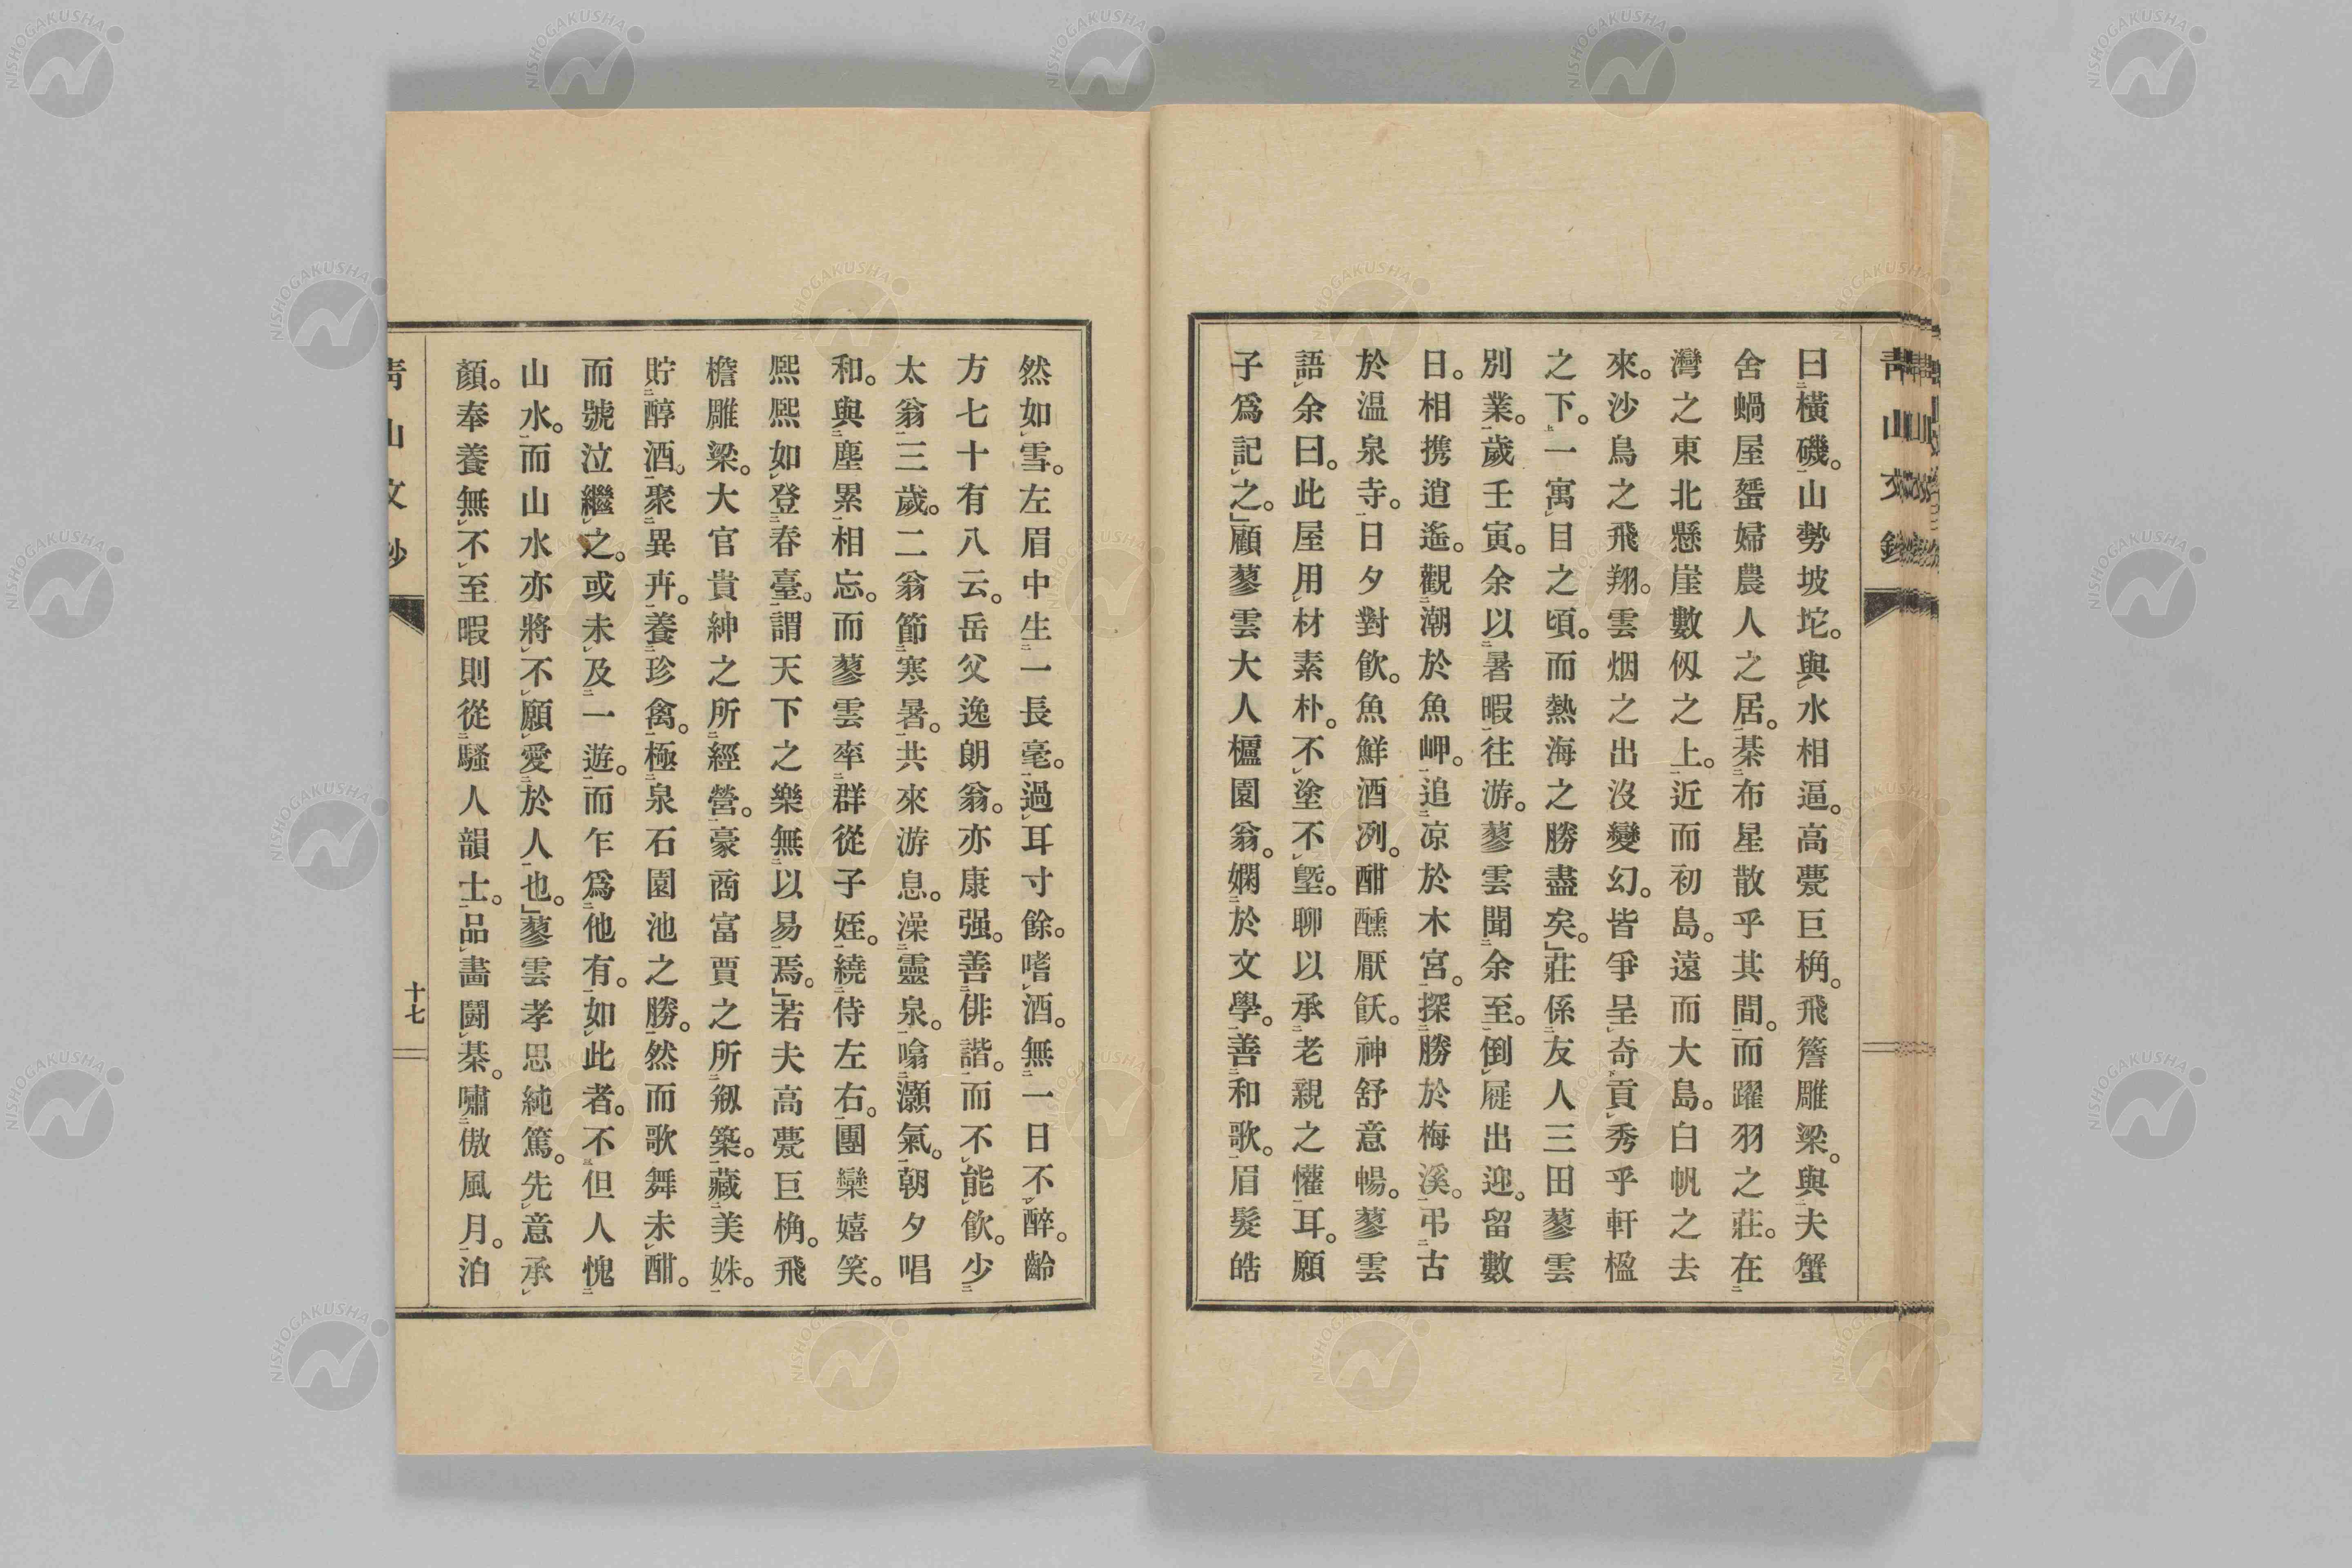 青山文鈔
曰橫磯。山勢坡坨。與水相逼。高甍巨桷。飛簷雕梁。與夫蟹
舍蝸屋蜑婦農人之居。棊布星散乎其間。而躍羽之莊。在
灣之東北懸崖數仭之上。近而初島。遠而大島。白帆之去
來。沙鳥之飛翔。雲烟之出沒變幻。皆爭呈奇貢秀乎軒楹
之下。一寓目之頃。而熱海之勝盡矣。」莊係友人三田蓼雲
別業。歲壬寅。余以暑暇往游。蓼雲聞余至。倒屣出迎。留數
日。相携逍遙。觀潮於魚岬。追凉於木宮。探勝於梅溪。弔古
於温泉寺。日夕對飮。魚鮮酒冽。酣醺厭飫。神舒意暢。蓼雲
語余曰。此屋用材素朴。不塗不塈。聊以承老親之懽耳。願
子爲記之。」顧蓼雲大人櫨園翁。嫻於文學。善和歌。眉髮皓
然如雪。左眉中生一長毫。過耳寸餘。嗜酒。無一日不醉。齡
方七十有八云。岳父逸朗翁。亦康强。善俳諧。而不能飮。少
太翁三歲。二翁節寒暑。共來游息。澡靈泉。噏灝氣。朝夕唱
和。與塵累相忘。而蓼雲率群從子姪。繞侍左右。團欒嬉笑。
熙熙如登春臺。謂天下之樂無以易焉。」若夫高甍巨桷。飛
檐雕梁。大官貴紳之所經營。豪商富賈之所剏築。藏美姝。
貯醇酒。聚異卉。養珍禽。極泉石園池之勝。然而歌舞未酣。
而號泣繼之。或未及一遊。而乍爲他有。如此者。不但人愧
山水。而山水亦將不願愛於人也。」蓼雲孝思純篤。先意承
顏。奉養無不至暇則從騷人韻士。品畵鬪棊。嘯傲風月。泊
青山文鈔
十七